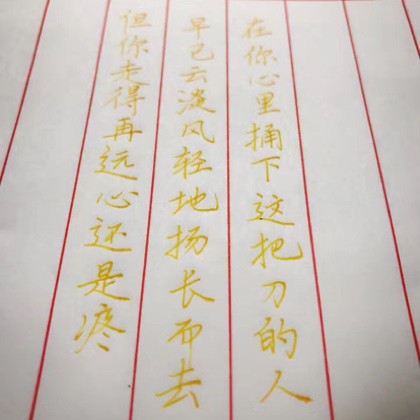 在你心里捅下这把刀的人
早已云淡风轻地扬长而去
但你走得再远心还是疼